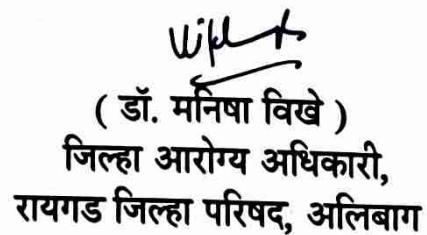 ( डॉ. मनिषा विखे )
जिल्हा आरोग्य अधिकारी,
रायगड जिल्हा परिषद, अलिबाग